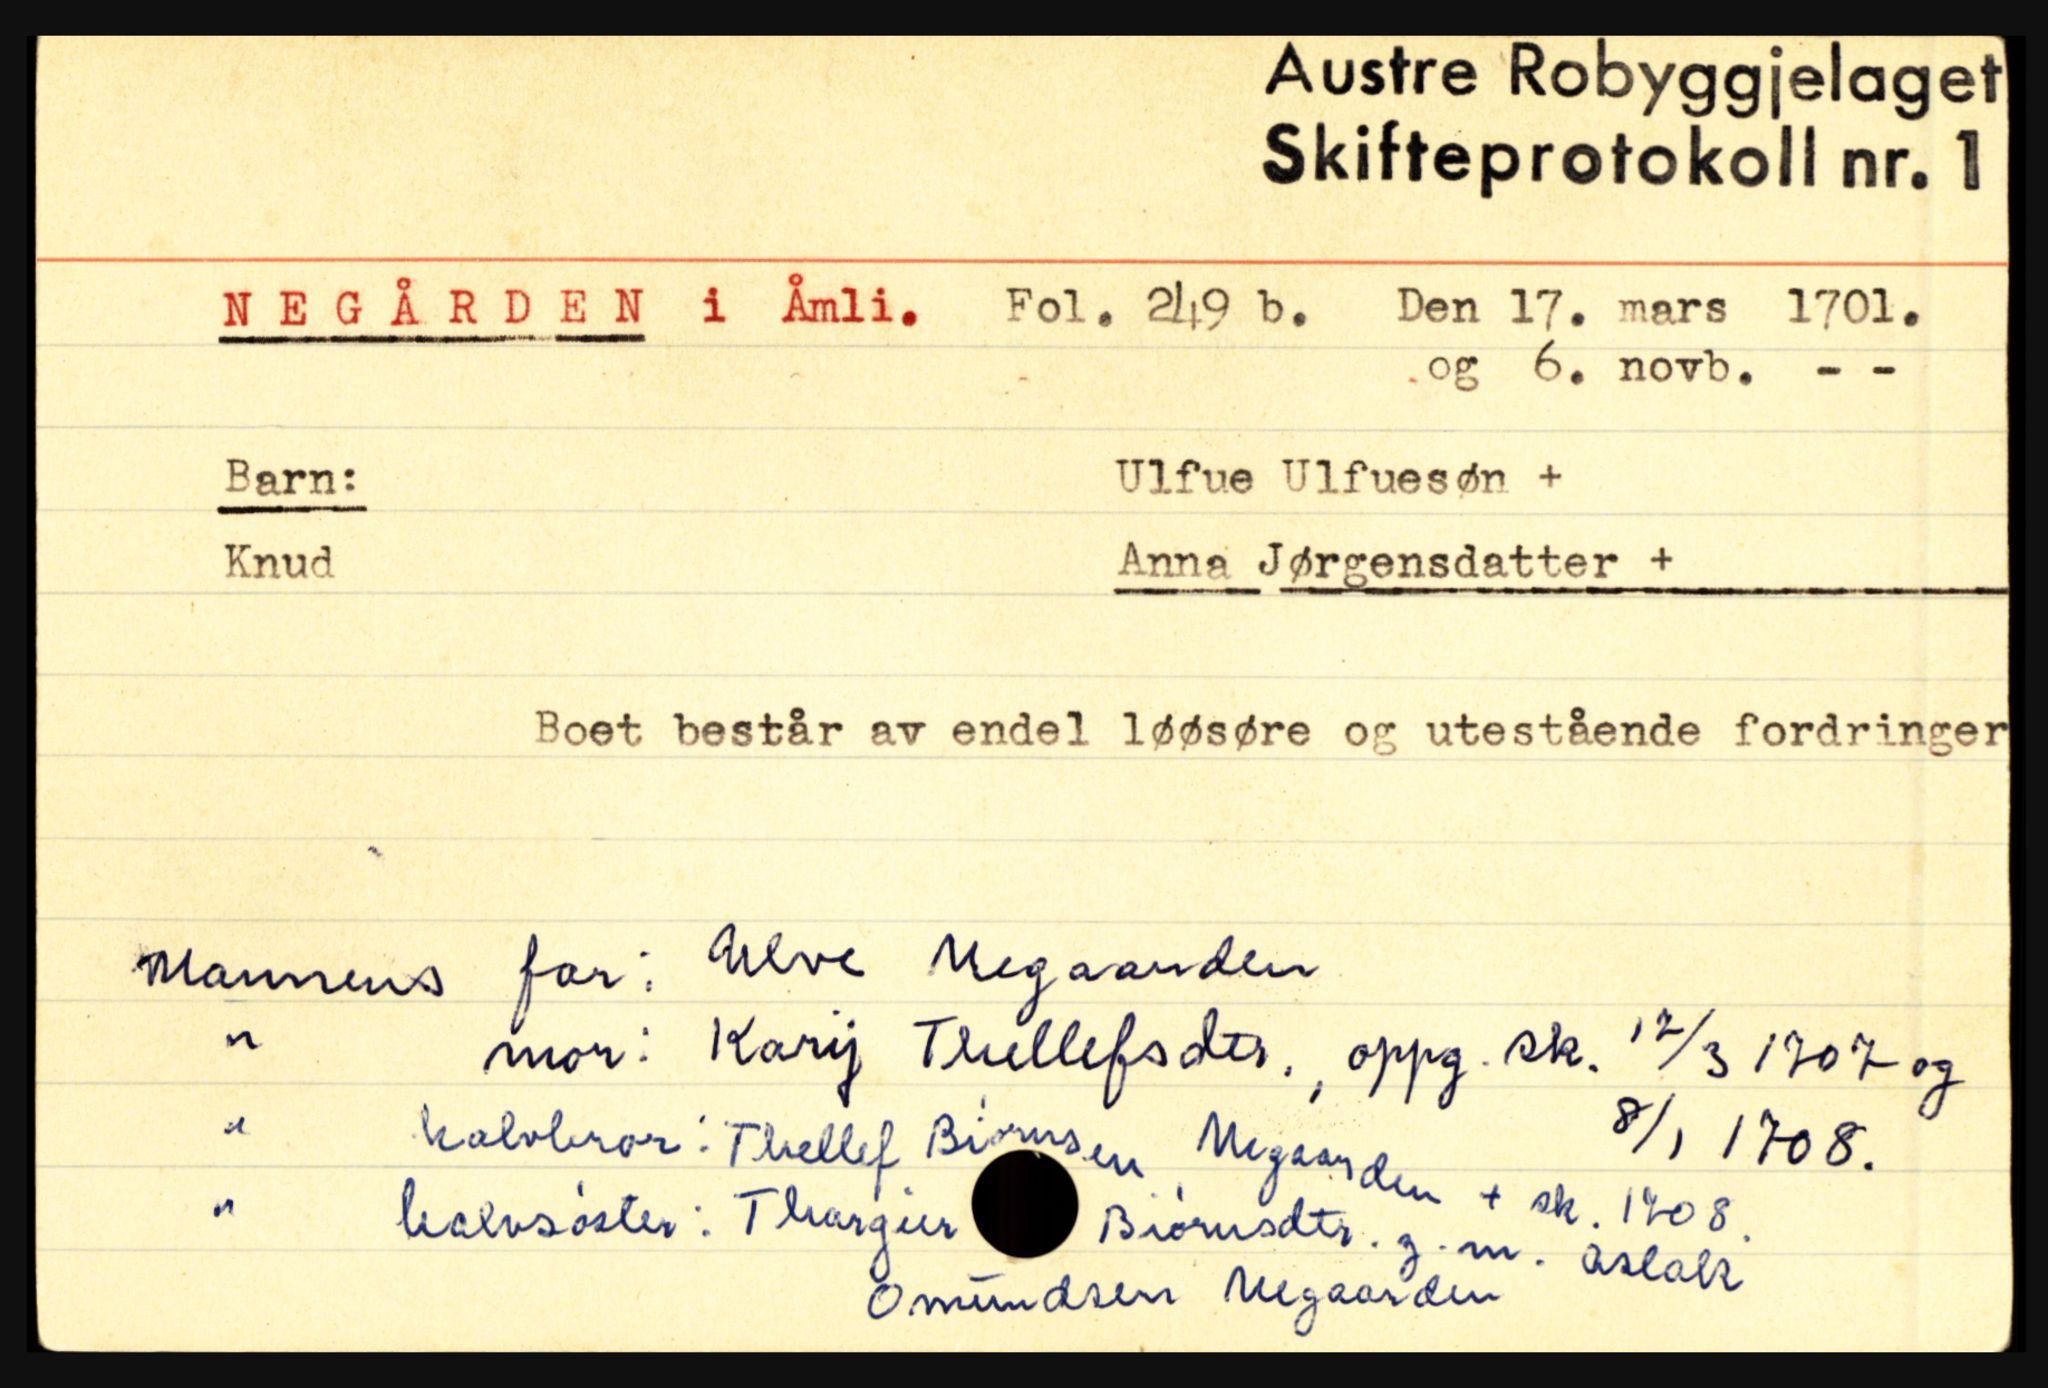 Austre Robyggjelaget
Skifteprotokoll nr. 1
NEGÅRDEN i Åmli. Fol. 249 b. Den 17. mars 1701.
og 6. novb. - -
Barn: Ulfue Ulfuesøn +
Knud Anna Jørgensdatter +
Boet består av endel løøsøre og utestående fordringer
Mannens far: Ulve Negaarden
" mor: Karij Thellefsdtr., oppg. sk. 17/3 1707 og
8/1 1708.
" halvbror: Thellef Biørnsen Negaarden + sk. 1708.
" halvsöster: Thorgier Biörnsdtr. g.m. Aslak
Omundsen Negaarden